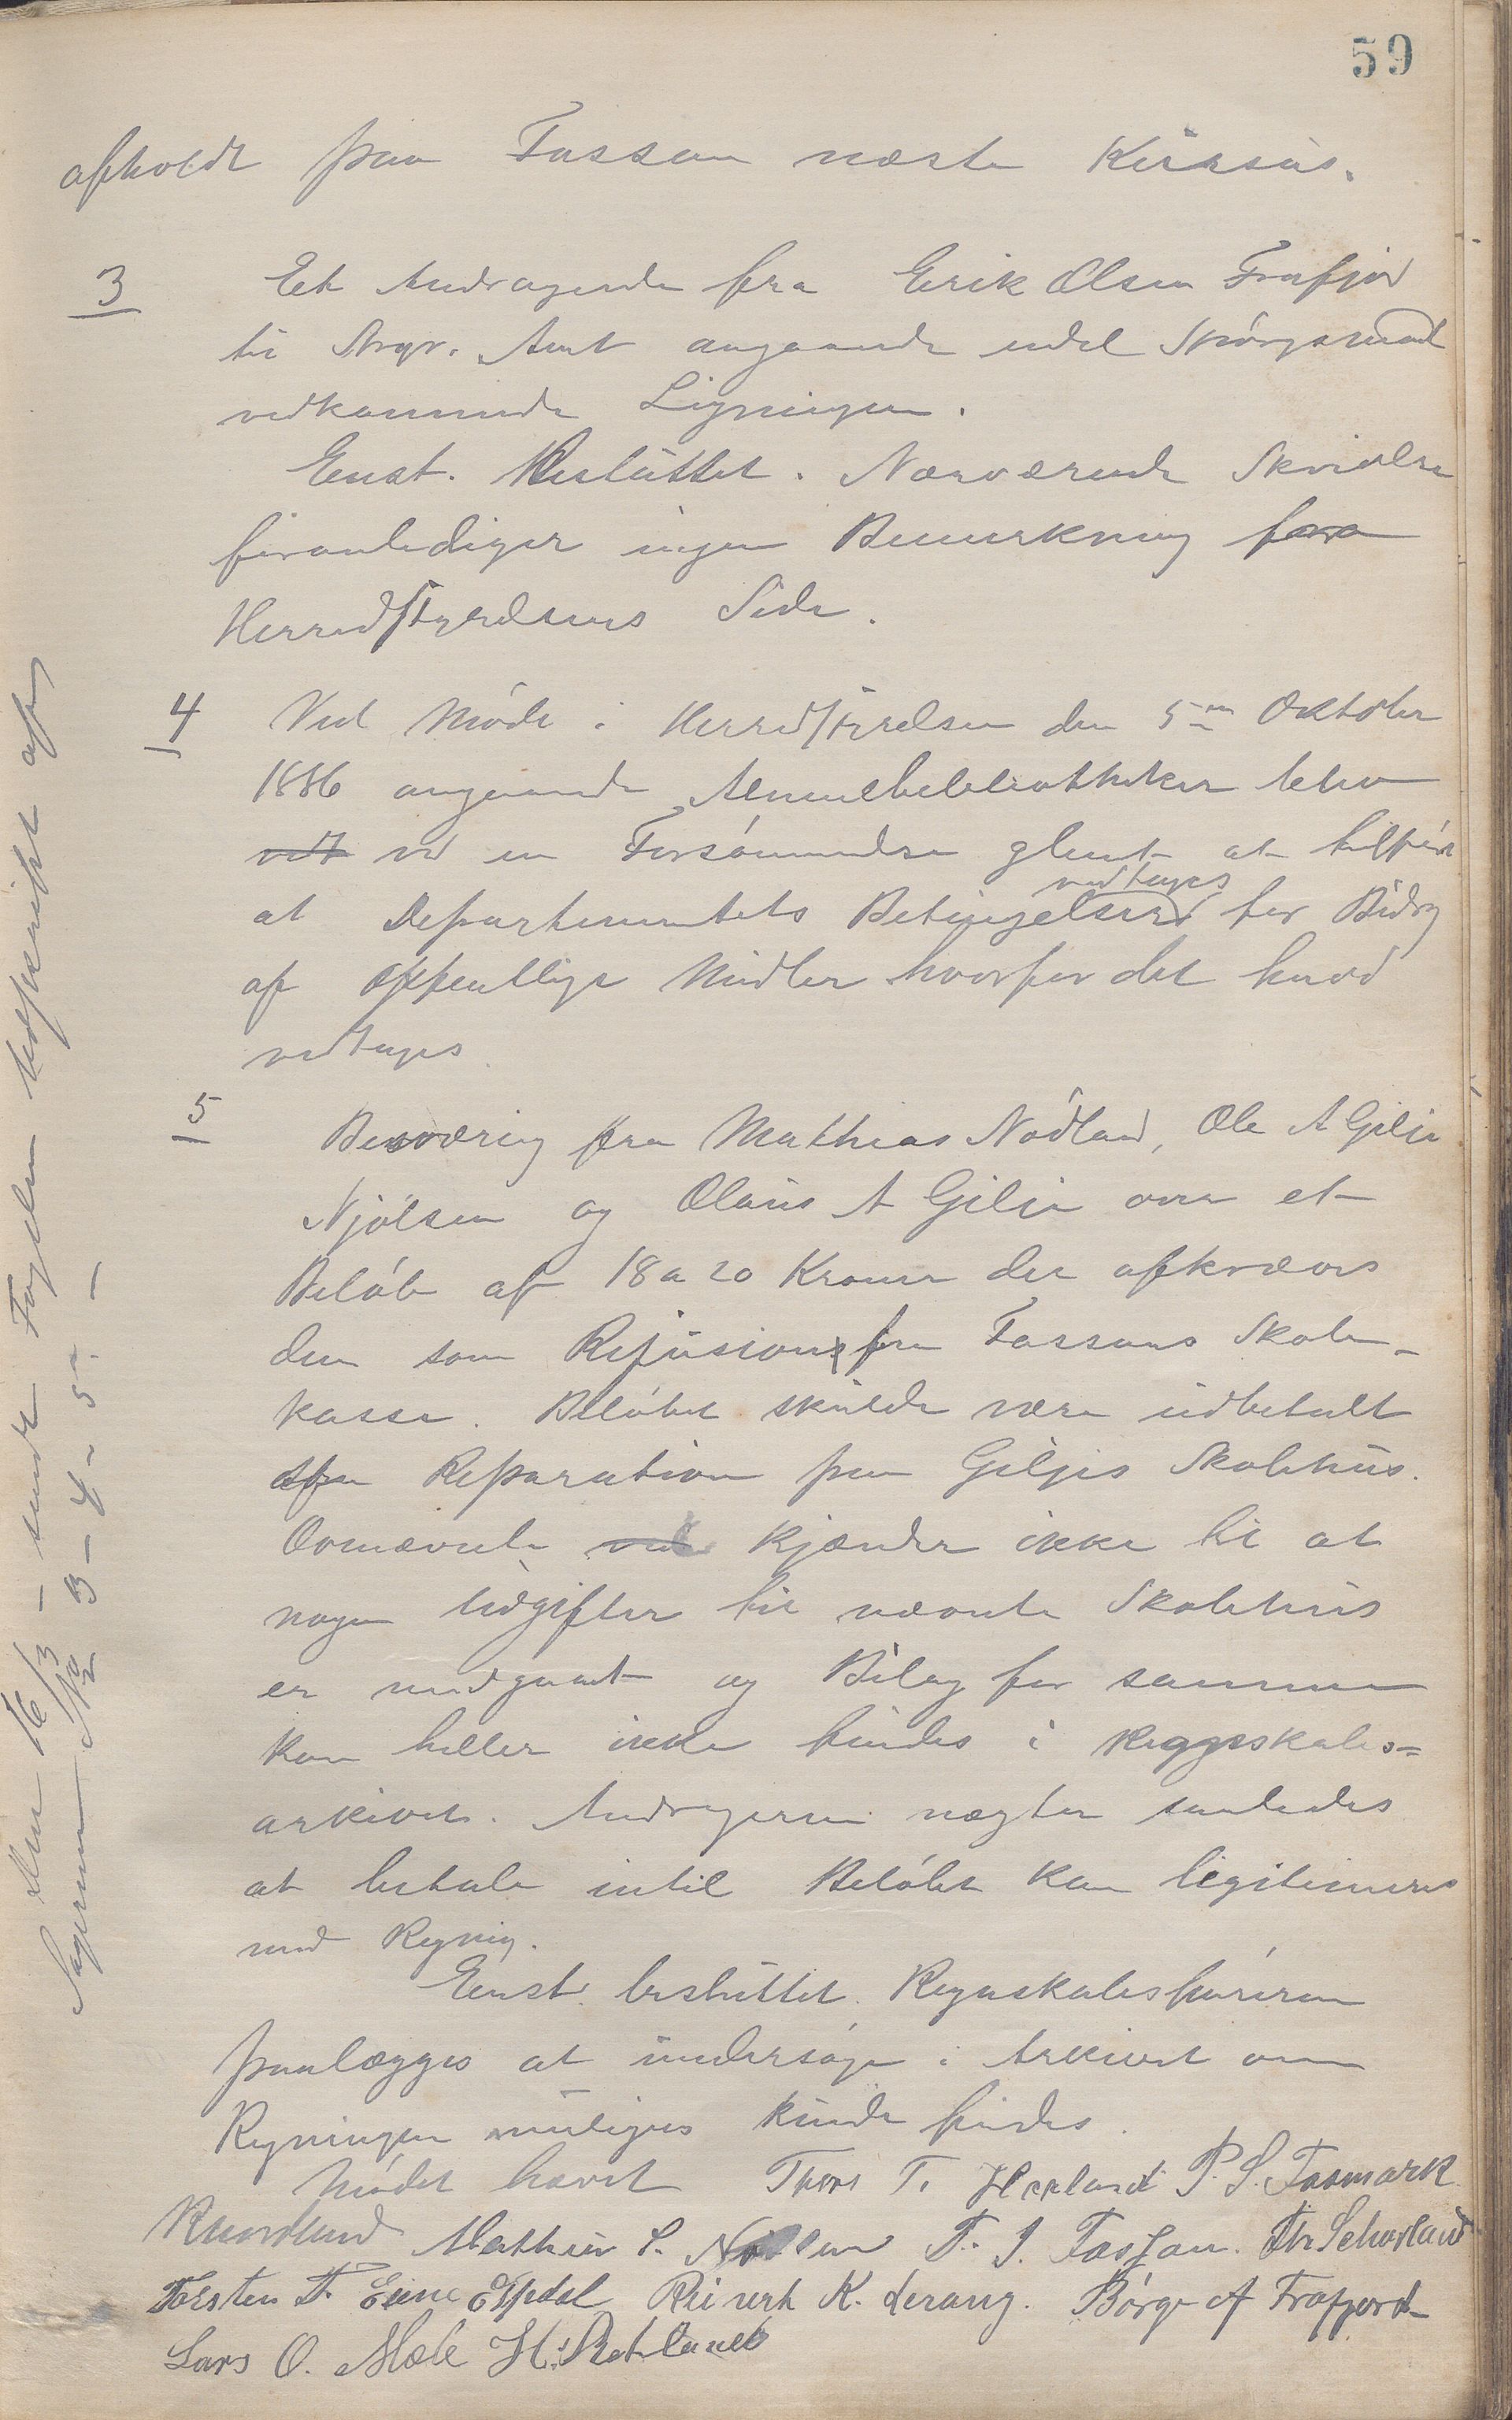 59
afholdt paa Fossan næste Kursus.
3 Et Andragende fra Erik Olsen Frafjord
til Angv. Amt angaaende endel Spörgsmaal
vedkommende Ligningen.
Enst. Besluttet. Nærværende Skrivelse
foranlediger ingen Bemerkning fra
Herredsstyrelsens Side.
4 Ved Möde i Herredsstyrelsen den 5te Oktober
1886 angaaende Almuebibliotheker blev
vedt ved en Forsömmelse glemt at tilföie
at Departementets Betingelser vedtages for Bidrag
af offentlige Midler hvorfor det herved
vedtages
5 Besværing fra Mathias Nödland, Ole A Gilje
Njölsen og Olaus A Gilje over et
Belöb af 18 a 20 Kroner der afkræves
dem som Refusion fra Fossans Skole-
kasse. Belöbet skulde være udbetalt
Reparation paa Giljes Skolehus.
Ovenævnte kjender ikke til at
nogen Udgifter til nævnte Skolehus
er medgaaet og Bilag for samme
kan heller ikke findes i Regnskabs-
arkivet. Andragerne nægter saaledes
at betale intil Belöbet kan legitimeres
med Regning.
Enst. besluttet. Regnskabsföreren
paalægges at undersöge i Arkivet om
Regningen muligens kunde findes.
Mödet hævet Thore T. Herland P. S. Fosmark
Mathias S. T. J. Fossan.
Torsten T. Eine Espedal Reinert K. Börge A Frafjord
Lars O. Mæle
Den 16/3 - sendt Fogden Udskrift af
Sagerne No 3 - 4 - 5. -